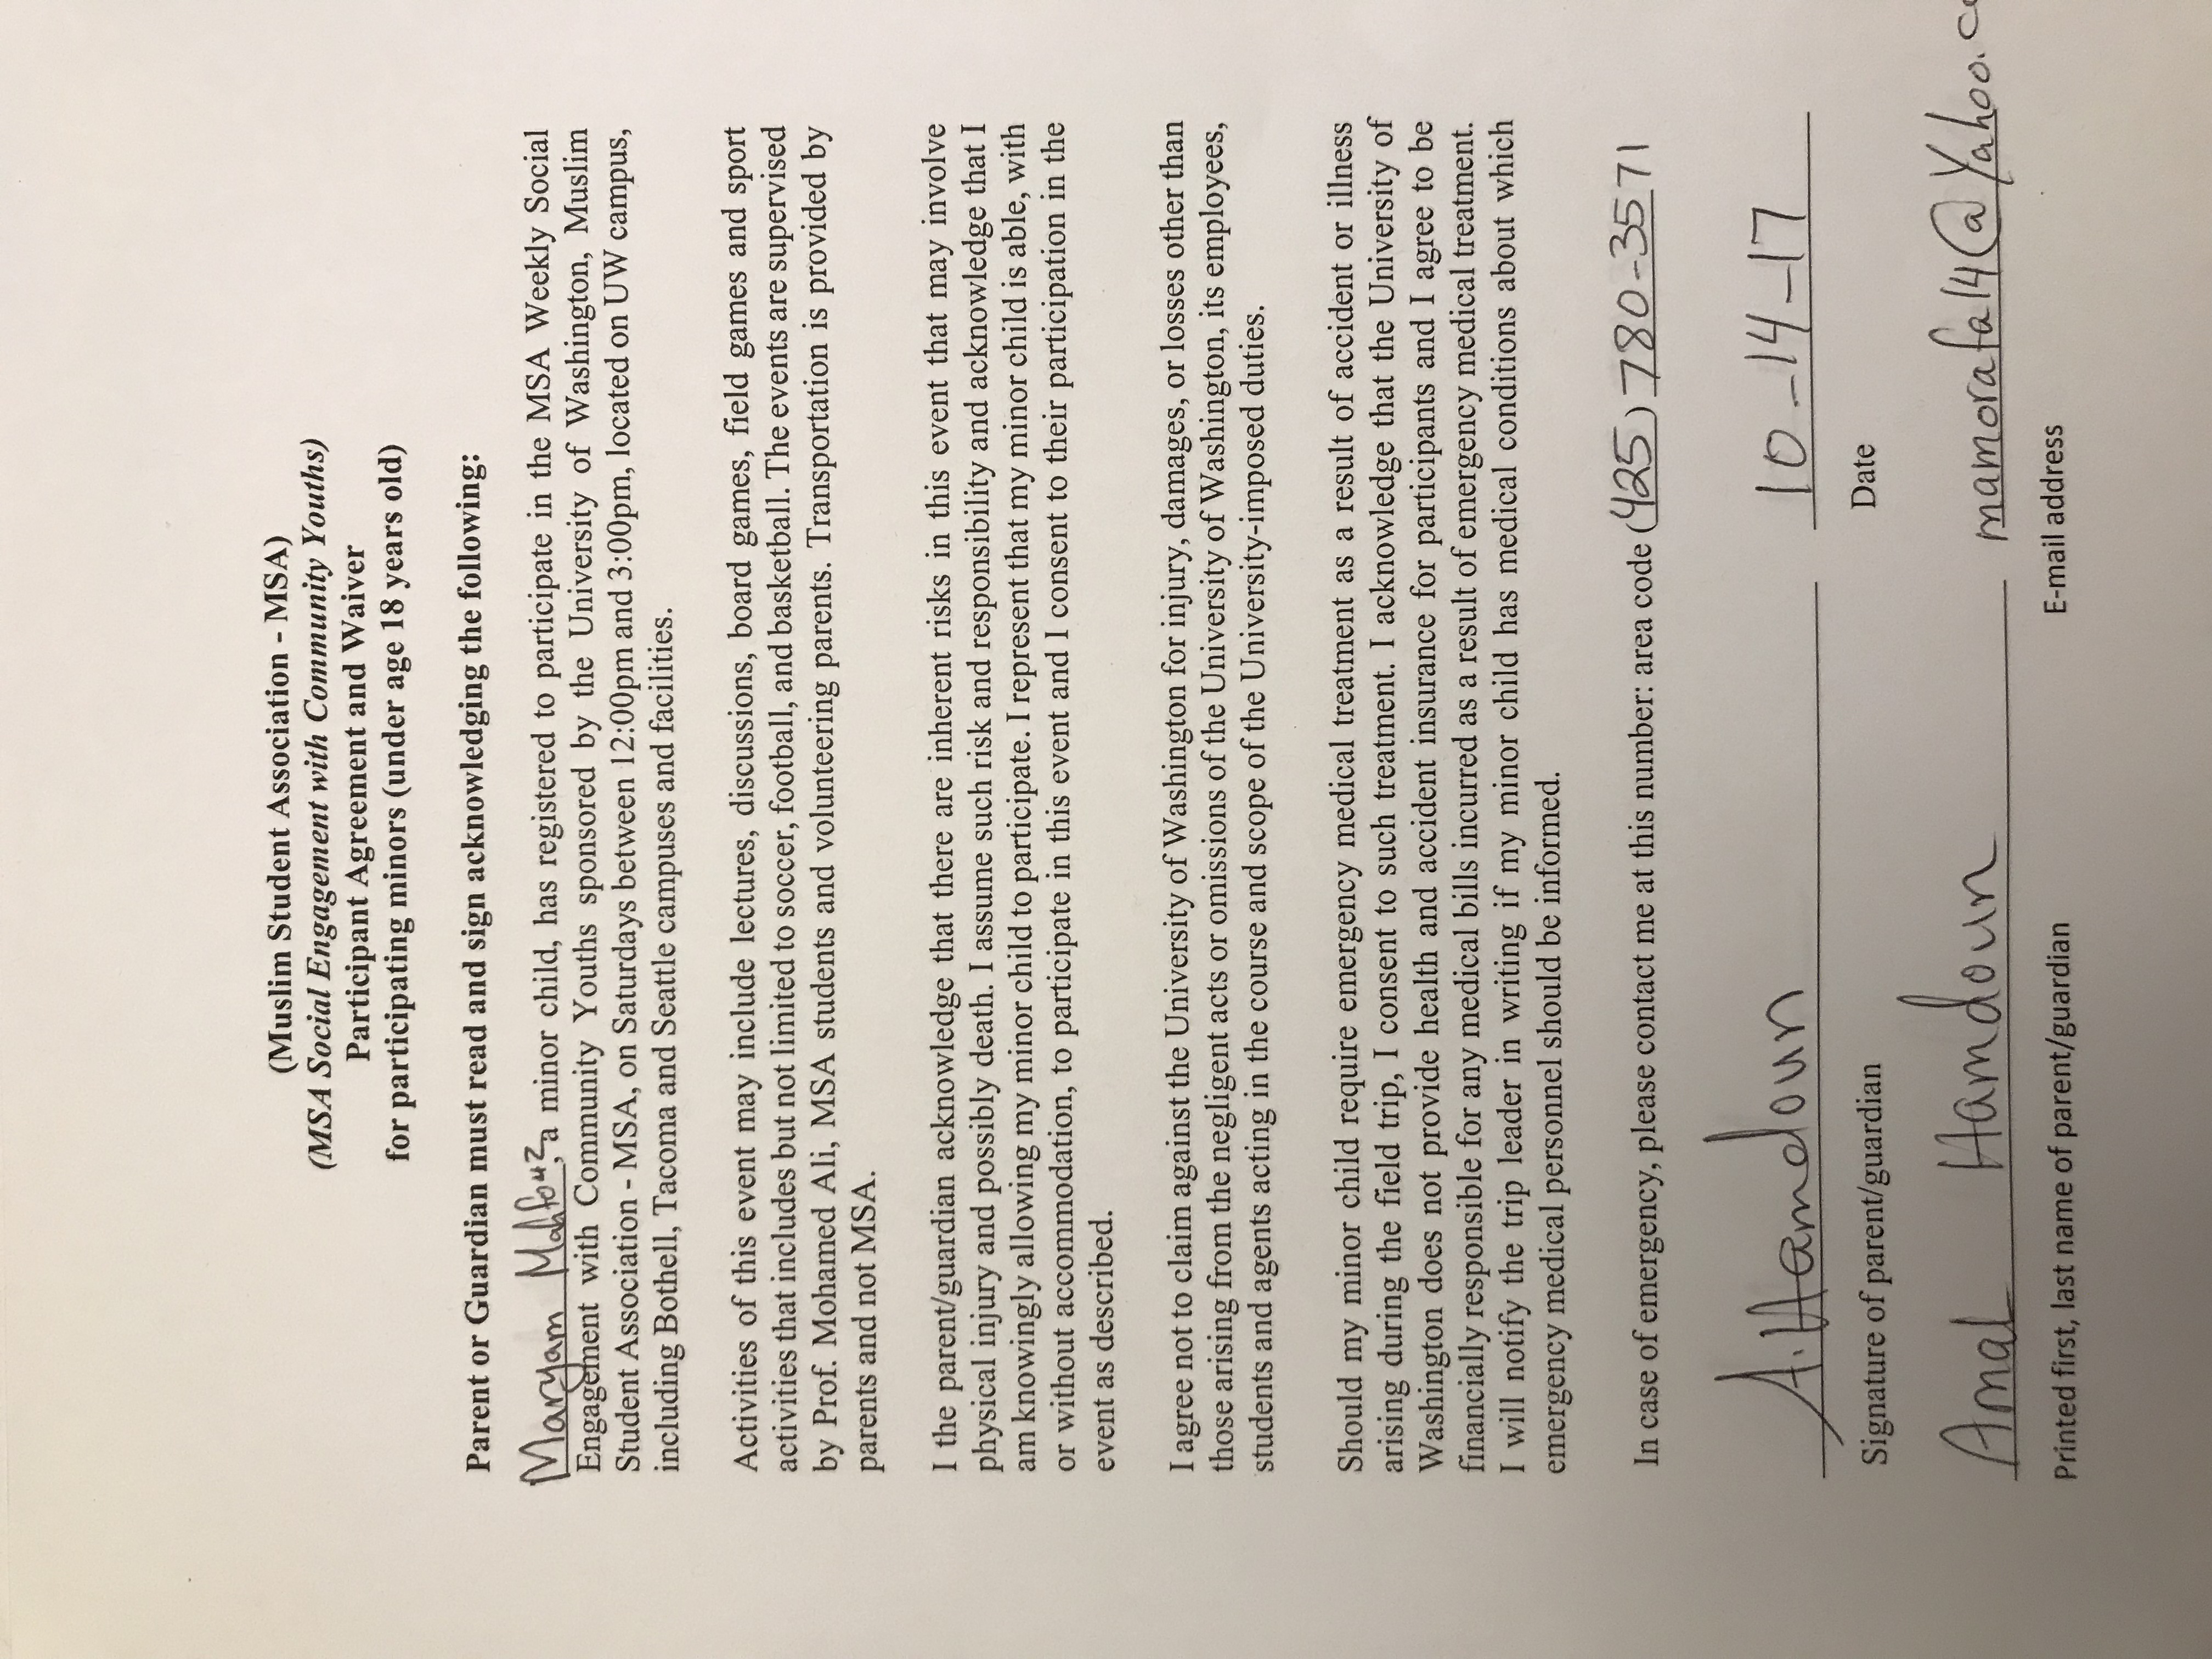 (Muslim Student Association - MSA)
(MSA Social Engagement with Community Youths)
Participant Agreement and Waiver
for participating minors (under age 18 years old)
Parent or Guardian must read and sign acknowledging the following:
Maryam Mahfouz, a minor child, has registered to participate in the MSA Weekly Social
Engagement with Community Youths sponsored by the University of Washington, Muslim
Student Association - MSA, on Saturdays between 12:00pm and 3:00pm, located on UW campus,
including Bothell, Tacoma and Seattle campuses and facilities.
Activities of this event may include lectures, discussions, board games, field games and sport
activities that includes but not limited to soccer, football, and basketball. The events are supervised
by Prof. Mohamed Ali, MSA students and volunteering parents. Transportation is provided by
parents and not MSA.
I the parent/guardian acknowledge that there are inherent risks in this event that may involve
physical injury and possibly death. I assume such risk and responsibility and acknowledge that I
am knowingly allowing my minor child to participate. I represent that my minor child is able, with
or without accommodation, to participate in this event and I consent to their participation in the
event as described.
I agree not to claim against the University of Washington for injury, damages, or losses other than
those arising from the negligent acts or omissions of the University of Washington, its employees,
students and agents acting in the course and scope of the University-imposed duties.
Should my minor child require emergency medical treatment as a result of accident or illness
arising during the field trip, I consent to such treatment. I acknowledge that the University of
Washington does not provide health and accident insurance for participants and I agree to be
financially responsible for any medical bills incurred as a result of emergency medical treatment.
I will notify the trip leader in writing if my minor child has medical conditions about which
emergency medical personnel should be informed.
In case of emergency, please contact me at this number: area code (425) 780-3571
A. Hamdoun 10-14-17
Signature of parent/guardian Date
Amal Hamdoun mamorafa14@Yahoo.c
Printed first, last name of parent/guardian E-mail address